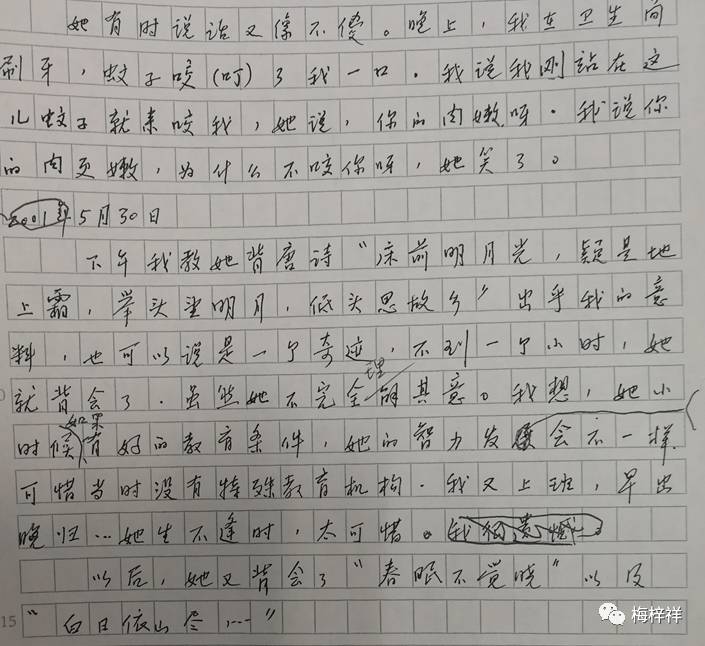 她有时说话又像不傻。晚上，我在卫生间
刷牙，蚊子咬(叮)了我一口。我说我刚站在这
儿蚊子就来咬我，她说，你的肉嫩呀。我说你
的肉更嫩，为什么不咬你呀，她笑了。
2001年5月30日
下午我教她背唐诗“床前明月光，疑是地
上霜，举头望明月，低头思故乡”出乎我的意
料，也可以说是一个奇迹，不到一个小时，她
就背会了。虽然她不完全理解其意。我想，她小
时候如果有好的教育条件，她的智力发展会不一样
可惜当时没有特殊教育机构。我又上班，早出
晚归…她生不逢时，太可惜。
以后，她又背会了“春眠不觉晓”以及
15 “白日依山尽……”
梅梓祥